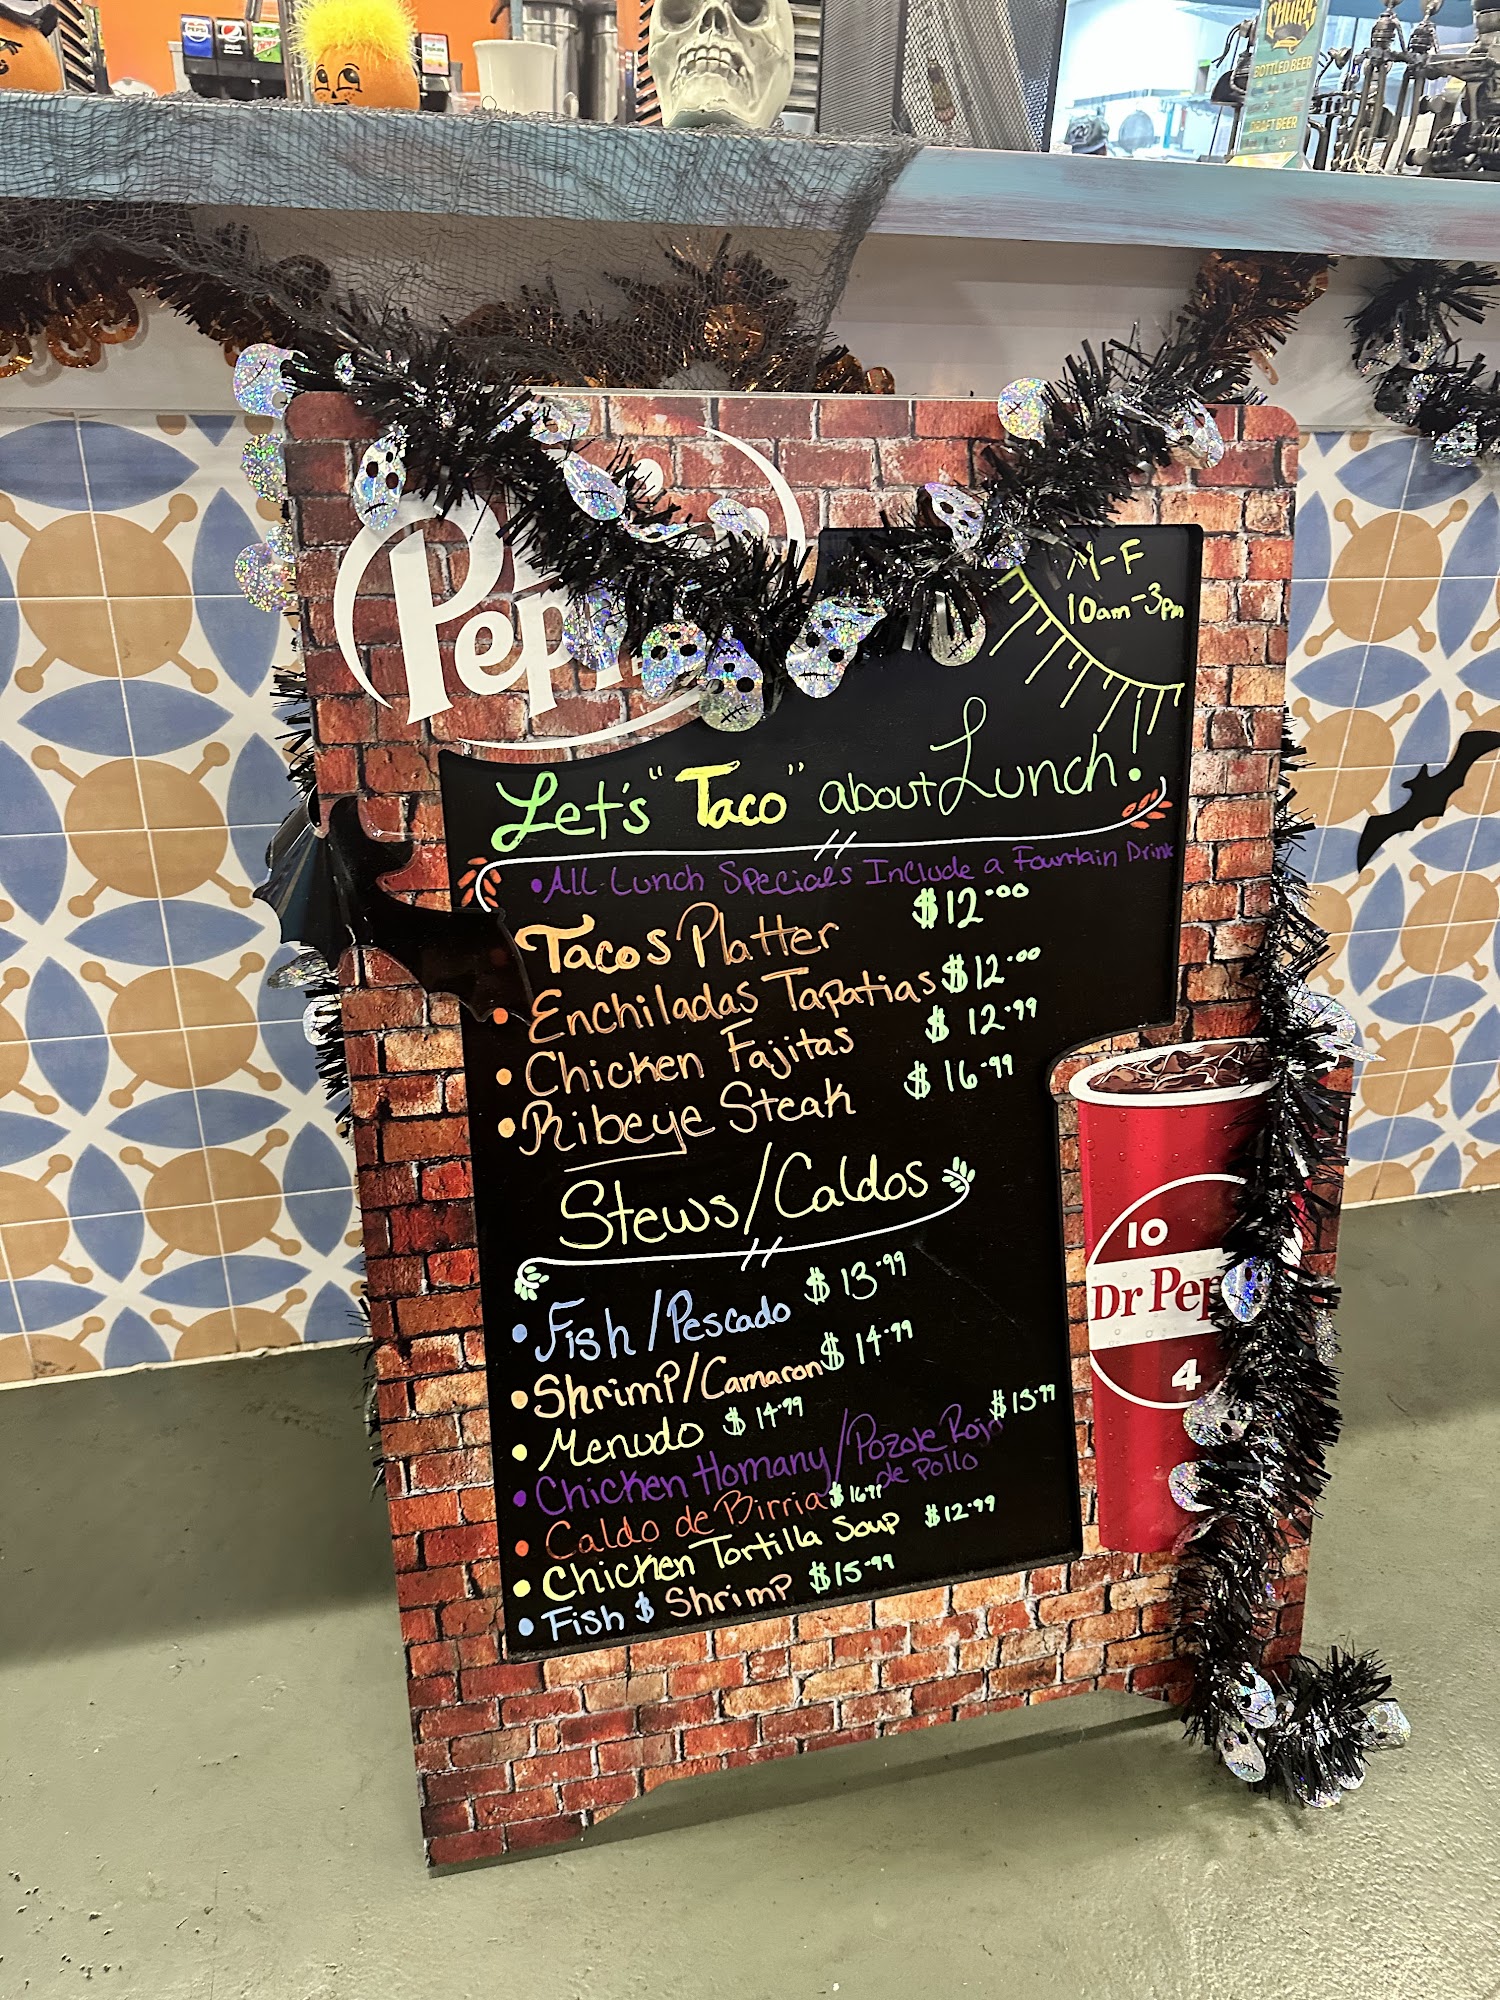 pepsi
CHUKIS
BOTTLED BEER
DRAFT BEER
Pepsi
M-F
10am-3pm
Let's "Taco" about Lunch!
• All Lunch Specials Include a Fountain Drink
Tacos Platter $12.00
• Enchiladas Tapatias $12.00
• Chicken Fajitas $12.99
• Ribeye Steak $16.99
Stews/Caldos
• Fish/Pescado $13.99
• Shrimp/Camaron $14.99
• Menudo $14.99
• Chicken Homany/Pozole Rojo $13.99
de Pollo
• Caldo de Birria $16.99
• Chicken Tortilla Soup $12.99
• Fish $ Shrimp $15.99
10
Dr Pep
4